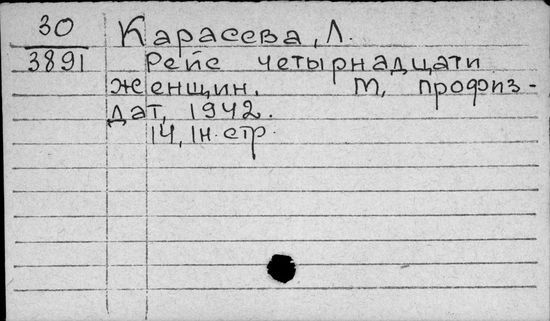 30
3891
Карасева, Л.
Рейс четырнадцати
женщин. М, профиз-
дат, 1942.
14, Iн. стр.